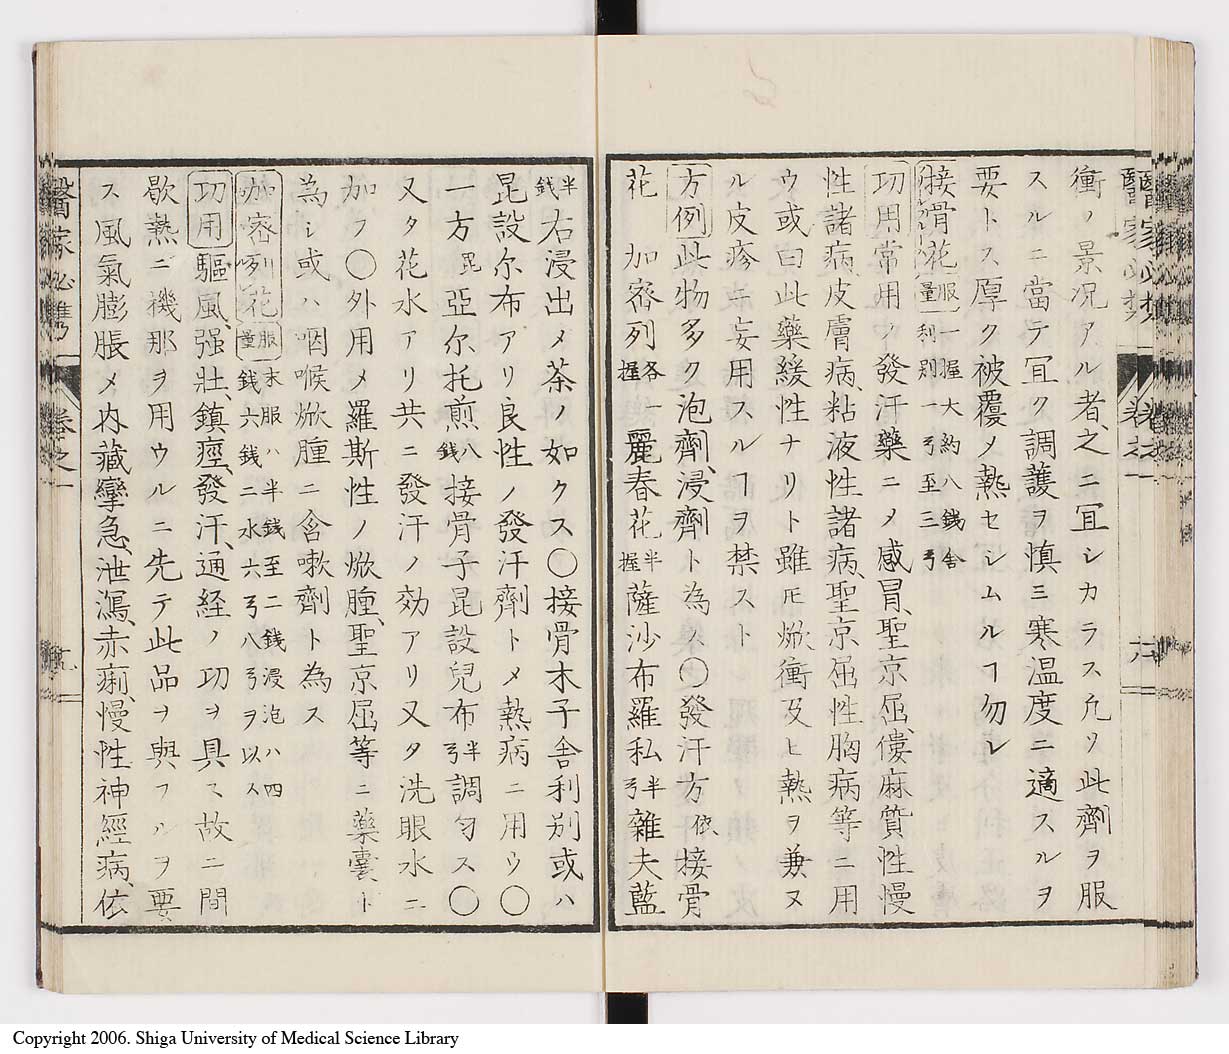 衝ノ景况アル者之ニ冝シカラス凡ソ此劑ヲ服
スルニ當テ冝ク調護ヲ慎ミ寒温度ニ適スルヲ
要トス厚ク被覆メ熱セシムルヿ勿レ
接骨花 服量 一握大約八銭舎利别一弓至三弓
功用 常用ノ發汗藥ニメ感冒、聖京屈、僂麻質性慢
性諸病、皮膚病、粘液性諸病、聖京屈性胸病等ニ用
ウ或曰此藥緩性ナリト雖𪜈焮衝及ヒ熱ヲ兼ヌ
ル皮疹ニ妄用スルヿヲ禁スト
方例 此物多ク泡劑、浸劑ト為ス〇發汗方 依 接骨
花 加密列 各一握 麗春花 半握 薩沙布羅私 半弓 雜夫藍
半銭 右浸出メ茶ノ如クス〇接骨木子舎利别或ハ
昆設尔布アリ良性ノ發汗劑トメ熱病ニ用ウ〇
一方 昆 亞尔托煎 八銭 接骨子昆設兒布 半弓 調匀ス〇
又タ花水アリ共ニ發汗ノ効アリ又タ洗眼水ニ
加フ〇外用メ羅斯性ノ焮腫、聖京屈等ニ藥囊ト
為シ或ハ咽喉焮腫ニ含嗽劑ト為ス
加密列花 服量 末服ハ半銭至二銭浸泡ハ四銭六銭二水六弓八弓ヲ以ス
功用 驅風、强壯、鎮痙、發汗、通経ノ功ヲ具ス故ニ間
歇熱ニ機那ヲ用ウルニ先テ此品ヲ與フルヲ要
ス風氣膨脹メ内藏攣急、泄瀉、赤痢、慢性神經病、依
醫家必携
卷之一
Copyright 2006. Shiga University of Medical Science Library